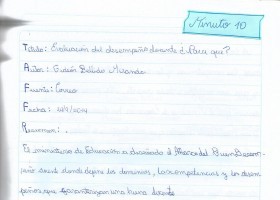 Minuto 10
Titulo: Evaluación del desempeño docente ¿Para que?
Autor: Fabián Bellido Miranda
Fuente: Correo
Fecha:
Resumen:.
El ministerio de Educación a diseñado el Marco del Buen Desem-
peño donde define los dominios, las competencias y los desem
peños que garantizan una buena docente